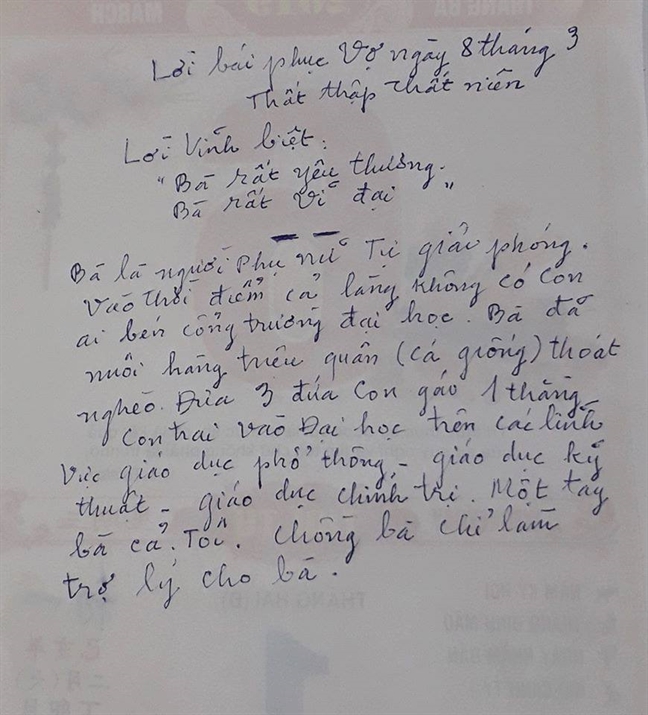 Lời bái phục Vợ ngày 8 tháng 3
Thất thập thất niên
Lời Vĩnh biệt:
"Bà rất yêu thương.
Bà rất vĩ đại"
Bà là người Phụ nữ Tự giải phóng.
Vào thời điểm cả làng không có con
ai bén cổng trường đại học. Bà đã
nuôi hàng triệu quân (cá giống) thoát
nghèo. Đưa 3 đứa con gáo 1 thằng
con trai vào Đại học trên các lĩnh
vực giáo dục phổ thông, - giáo dục kỹ
thuật - giáo dục chính trị. Một tay
bà cả. Tôi. Chồng bà chỉ làm
trợ lý cho bà.
MARCH
THÁNG BA
2019